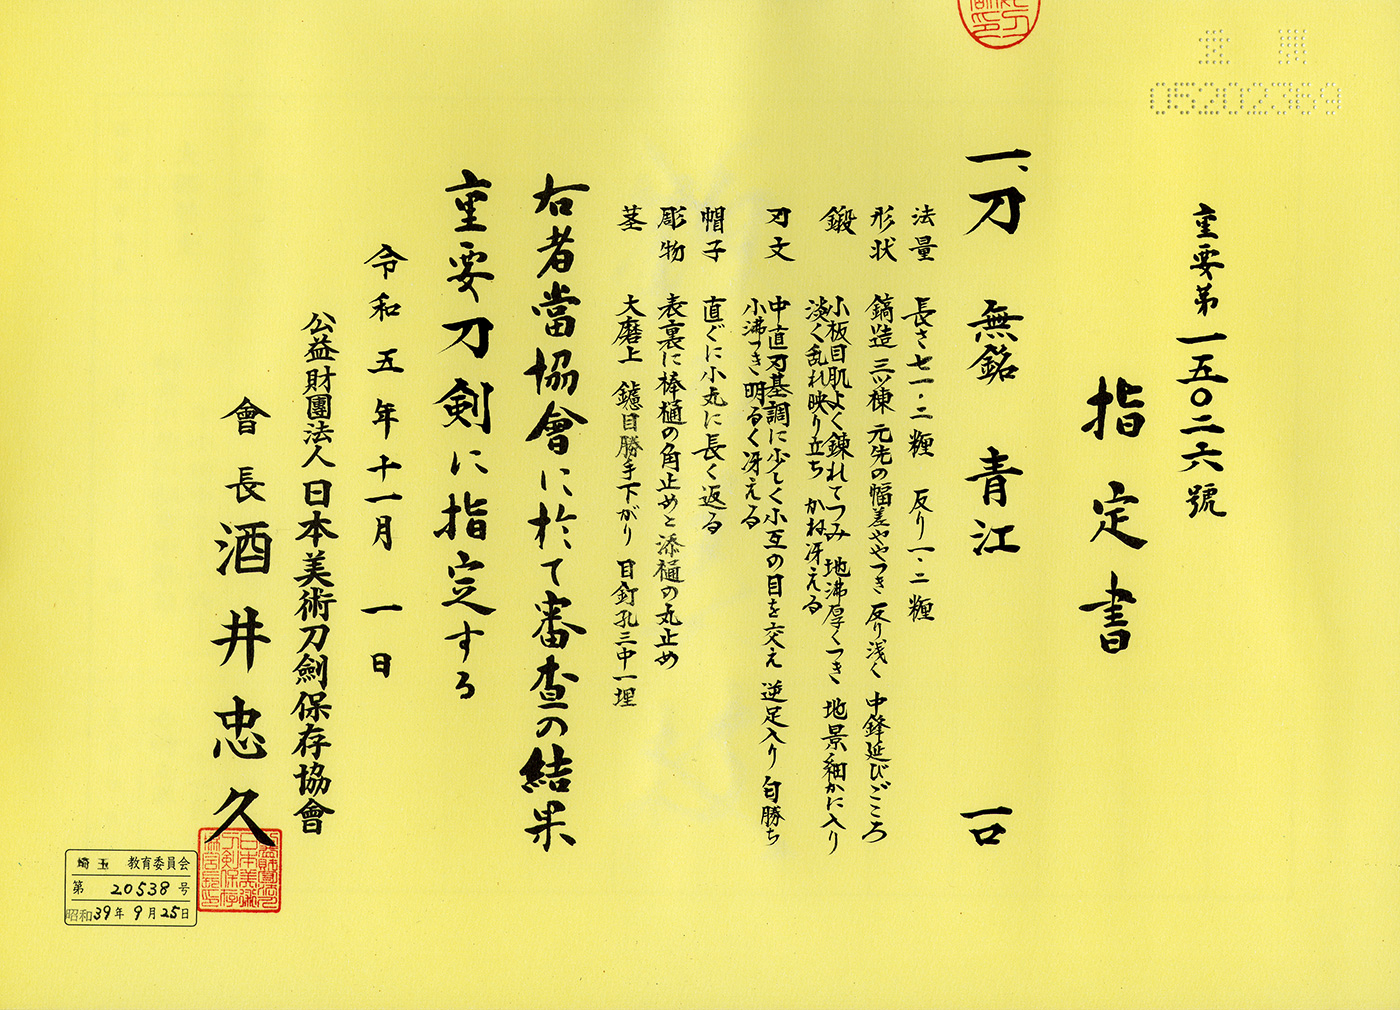 05202369
重要第一五〇二六號
指定書
一、刀 無銘 青江 一口
法量 長さ七一・二糎 反り一・二糎
形状 鎬造 三ツ棟 元先の幅差ややつき 反り浅く 中鋒延びごころ
鍛 小板目肌よく錬れてつみ 地沸厚くつき 地景細かに入り
淡く乱れ映り立ち かね冴える
刃文 中直刃基調に少しく小互の目を交え 逆足入り 匂勝ち
小沸つき 明るく冴える
帽子 直ぐに小丸に長く返る
彫物 表裏に棒樋の角止めと添樋の丸止め
茎 大磨上 鑢目勝手下がり 目釘孔三中一埋
右者當協會に於て審査の結果
重要刀剣に指定する
令和五年十一月一日
公益財團法人日本美術刀劍保存協會
會長 酒井忠久
埼玉 教育委員会
第 20538 号
昭和39年9月25日